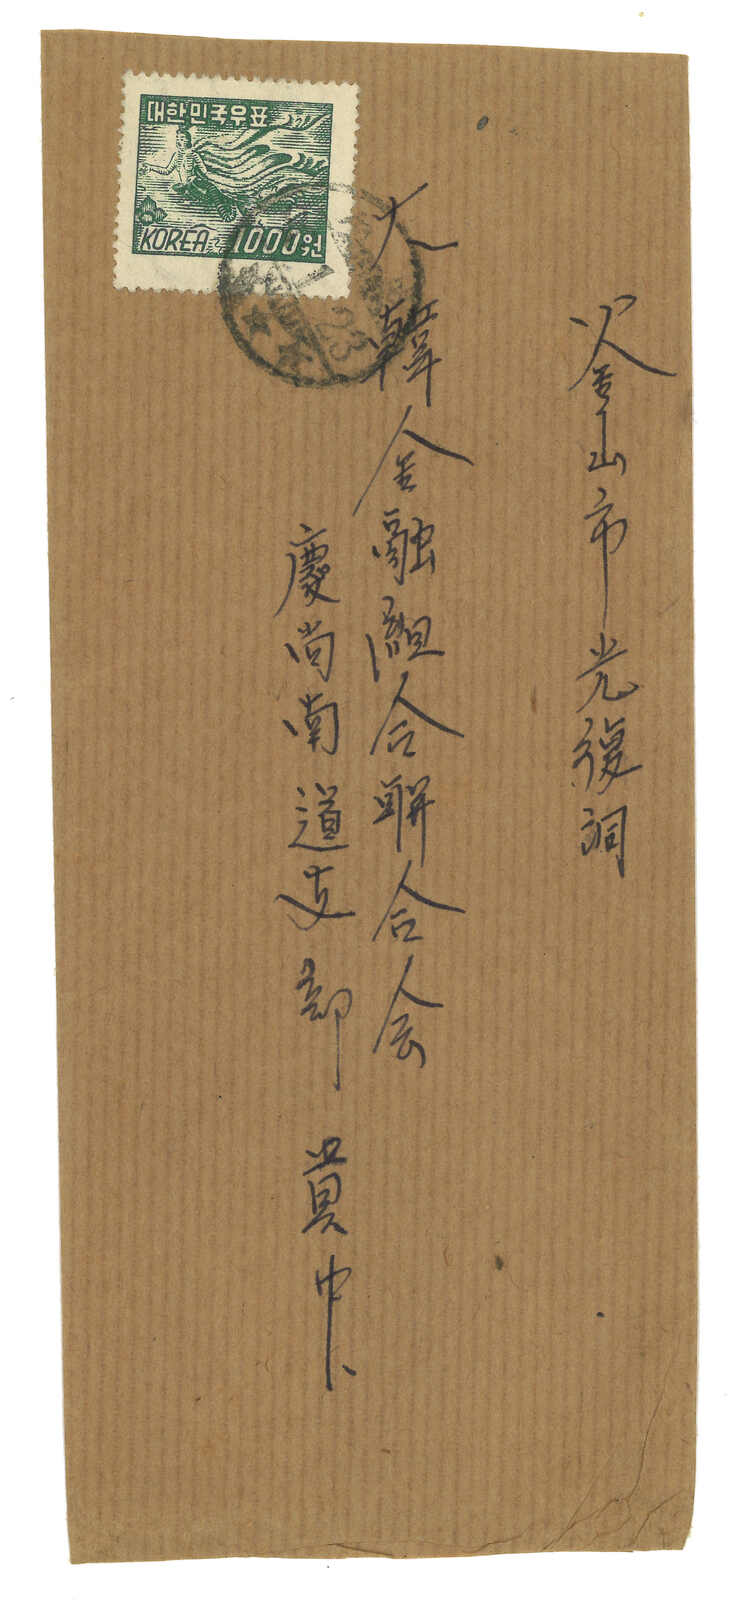 釜山市光復洞
大韓金融組合聯合会
慶尚南道支部 貴中
대한민국우표
KOREA 1000원
23